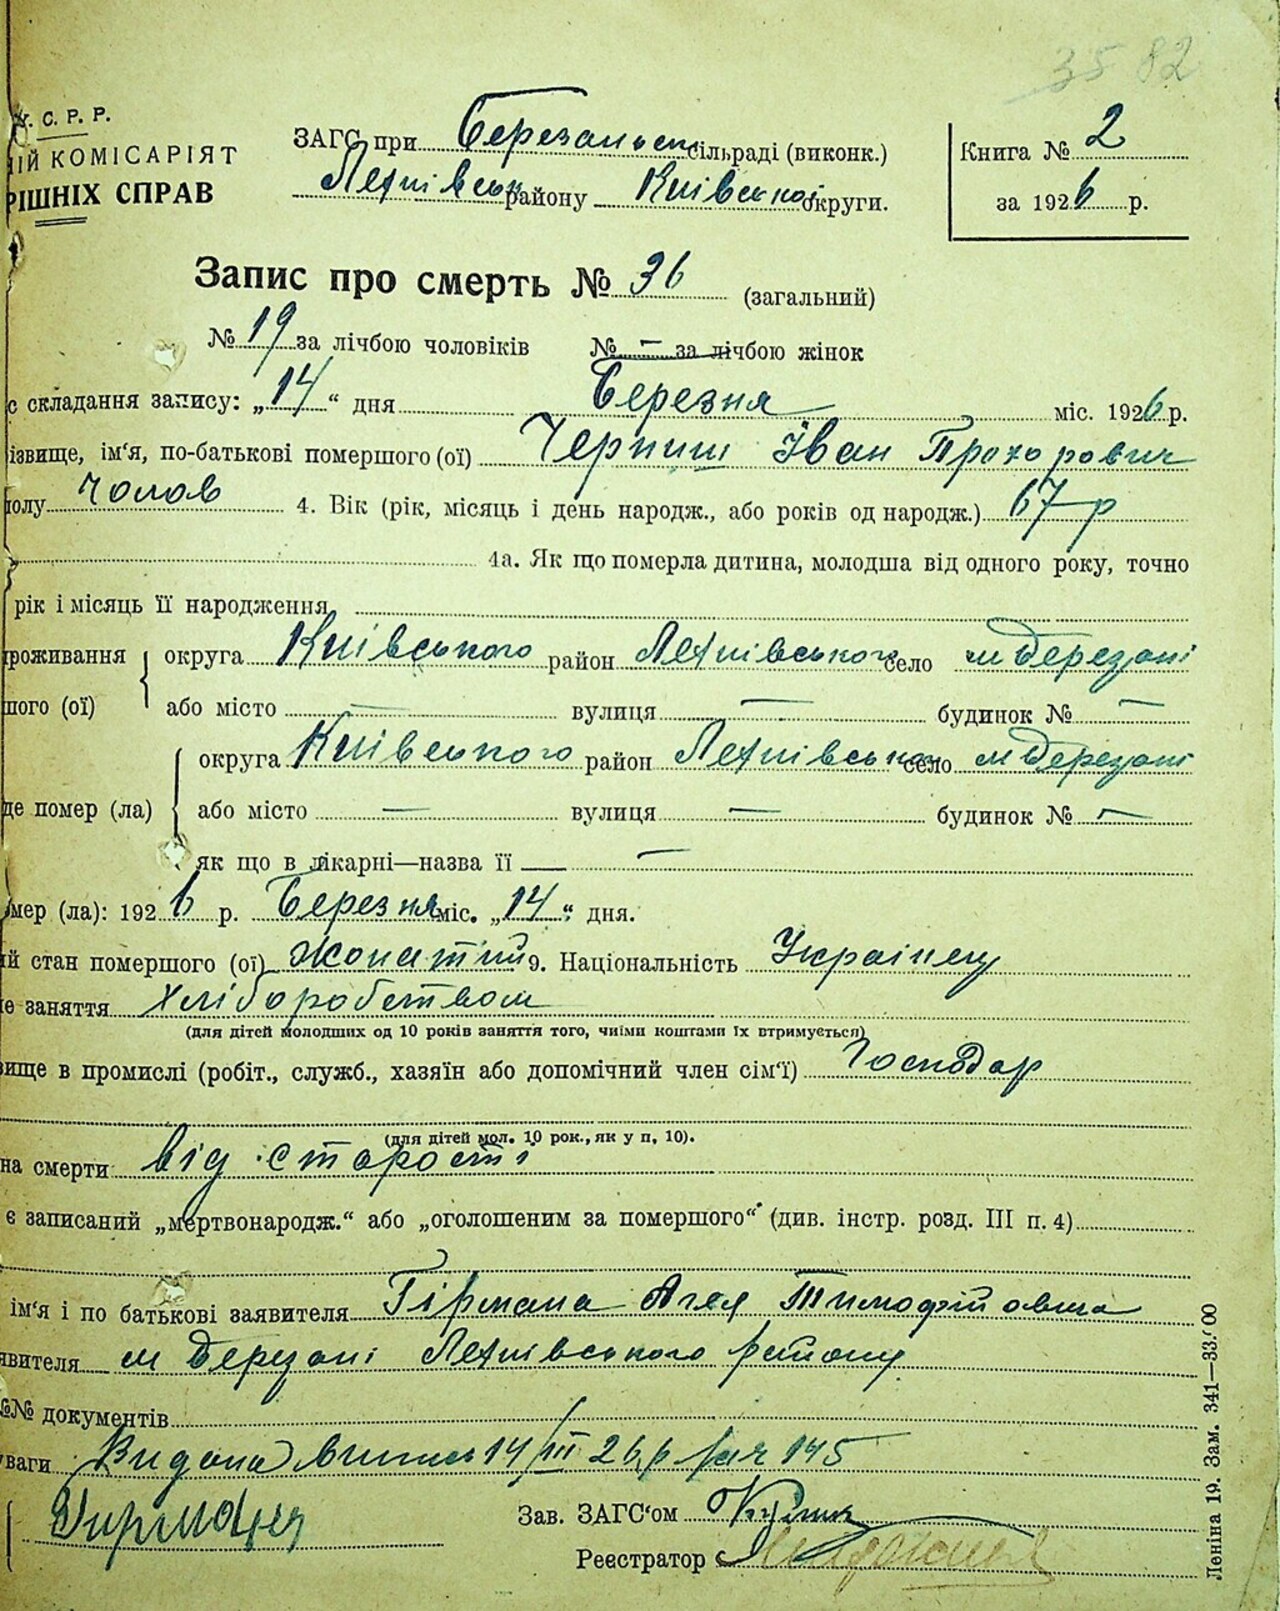 35 82
У. С. Р. Р.
НІЙ КОМІСАРІЯТ
РІШНІХ СПРАВ
ЗАГС при Березанськ сільраді (виконк.)
Лехнівськ району Київської округи.
Книга № 2
за 1926 р.
Запис про смерть № 36 (загальний)
№ 19 за лічбою чоловіків № — за лічбою жінок
с складання запису: „14“ дня Березня міс. 1926 р.
ізвище, ім'я, по-батькові помершого (ої) Черпиш Іван Прохорович
полу Чолов 4. Вік (рік, місяць і день народж., або років од народж.) 67 р
4а. Як що померла дитина, молодша від одного року, точно
рік і місяць її народження
роживання округа Київського район Лехнівського село м Березані
шого (ої) або місто — вулиця — будинок № —
округа Київського район Лехнівського село м Березані
де помер (ла) або місто — вулиця — будинок № —
як що в лікарні—назва її —
омер (ла): 1926 р. Березня міс. „14“ дня.
ий стан помершого (ої) жонатий 9. Національність Українец
не заняття хліборобством
(для дітей молодших од 10 років заняття того, чиїми коштами їх втримується)
вище в промислі (робіт., служб., хазяїн або допомічний член сім'ї) Господар
(для дітей мол. 10 рок., як у п, 10).
на смерти від старости
є записаний „мертвонародж.“ або „оголошеним за помершого“ (див. інстр. розд. III п. 4)
ім'я і по батькові заявителя Гірмана Тимофійовна
явителя м Березані Лехнівського району
№№ документів
уваги Видана випись 14/III 26 р 145
Зав. ЗАГС'ом
Реєстратор
Леніна 19. Зам. 341—33.00